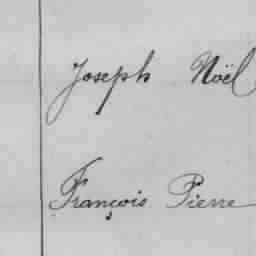 Joseph Noël
François Pierre